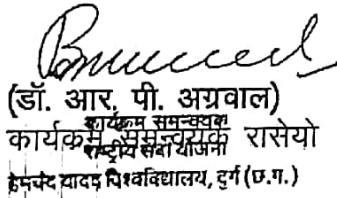 (डॉ. आर. पी. अग्रवाल)
कार्यक्रम समन्वयक
कार्यक्रम समन्वयक रासेयो
राष्ट्रीय सेवा योजना
हेमचंद यादव विश्वविद्यालय, दुर्ग (छ.ग.)